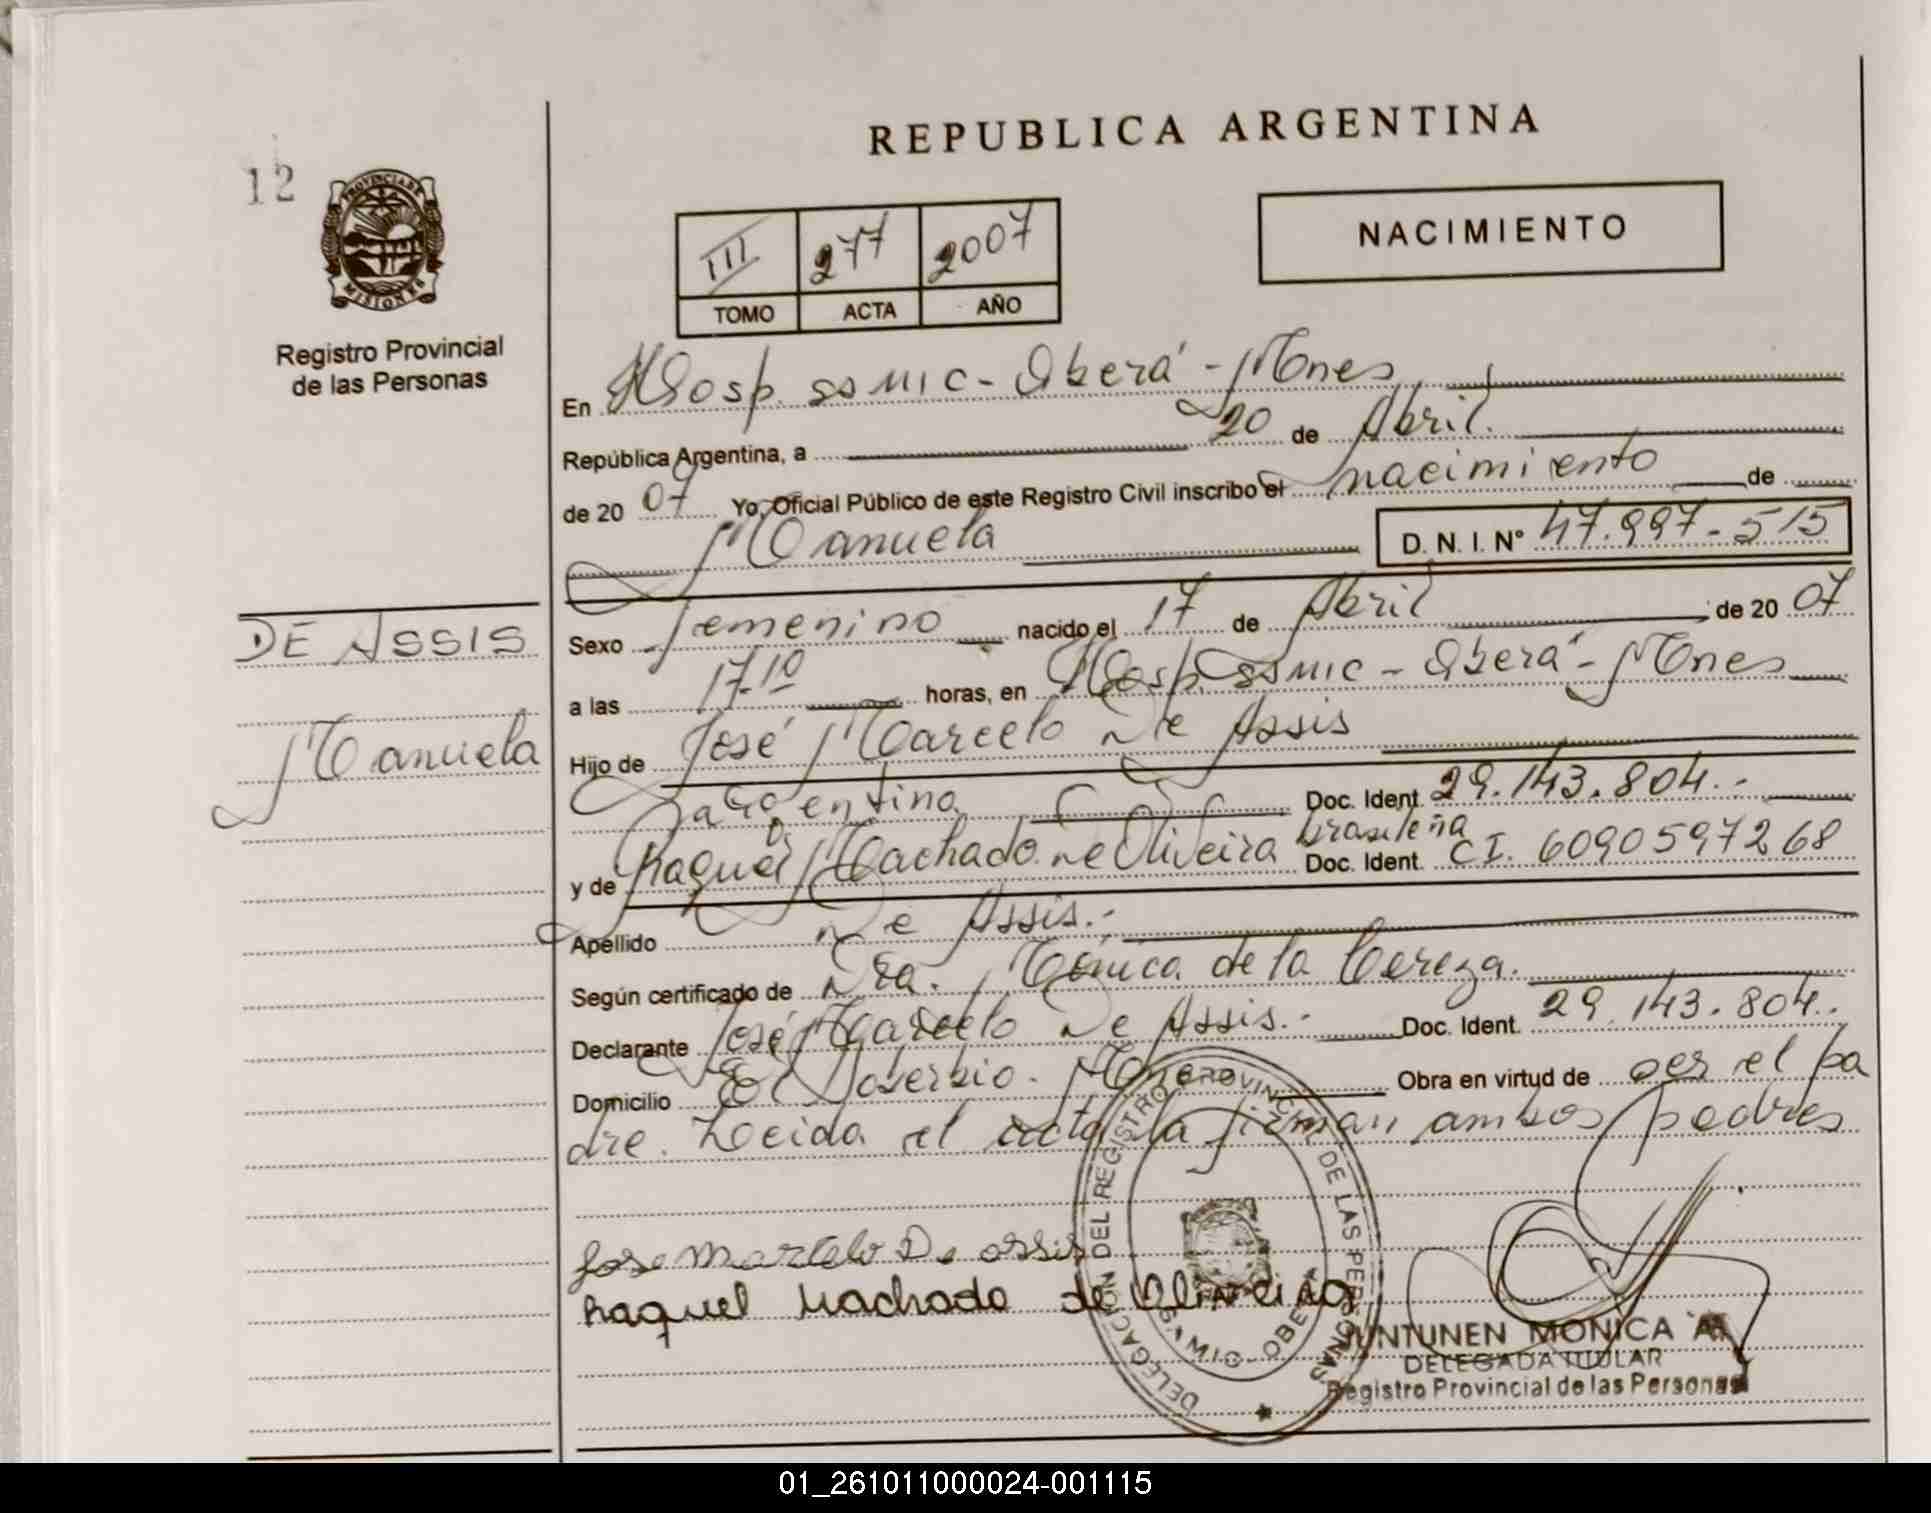 REPUBLICA ARGENTINA
12
PROVINCIA DE
MISIONES
Registro Provincial
de las Personas
III 277 2007
TOMO ACTA AÑO
NACIMIENTO
En Hosp. SSMIC - Oberá - Mnes
República Argentina, a 20 de Abril.
de 20 07 Yo, Oficial Público de este Registro Civil inscribo el nacimiento de
Manuela D. N. I. N° 47.997-515
DE ASSIS
Manuela
Sexo femenino nacido el 17 de Abril de 20 07
a las 17-10 horas, en Hosp. SSMIC - Oberá - Mnes
Hijo de José Marcelo De Assis
argentino Doc. Ident. 29.143.804.-
brasileña
y de Raquel Machado De Oliveira Doc. Ident. CI. 60905997268
Apellido De Assis.-
Según certificado de Dra. Mónica de la Cereza.
Declarante José Marcelo De Assis.- Doc. Ident. 29.143.804.
Domicilio El Soberbio. Mnes Obra en virtud de ser el pa
dre. Leida el acta la firman ambos padres
Jose Marcelo De assis
Raquel Machado de Oliveira
DELEGACIÓN DEL REGISTRO PROVINCIAL DE LAS PERSONAS
OBERA
JUNTUNEN MONICA A.
DELEGADA TITULAR
Registro Provincial de las Personas
01_261011000024-001115